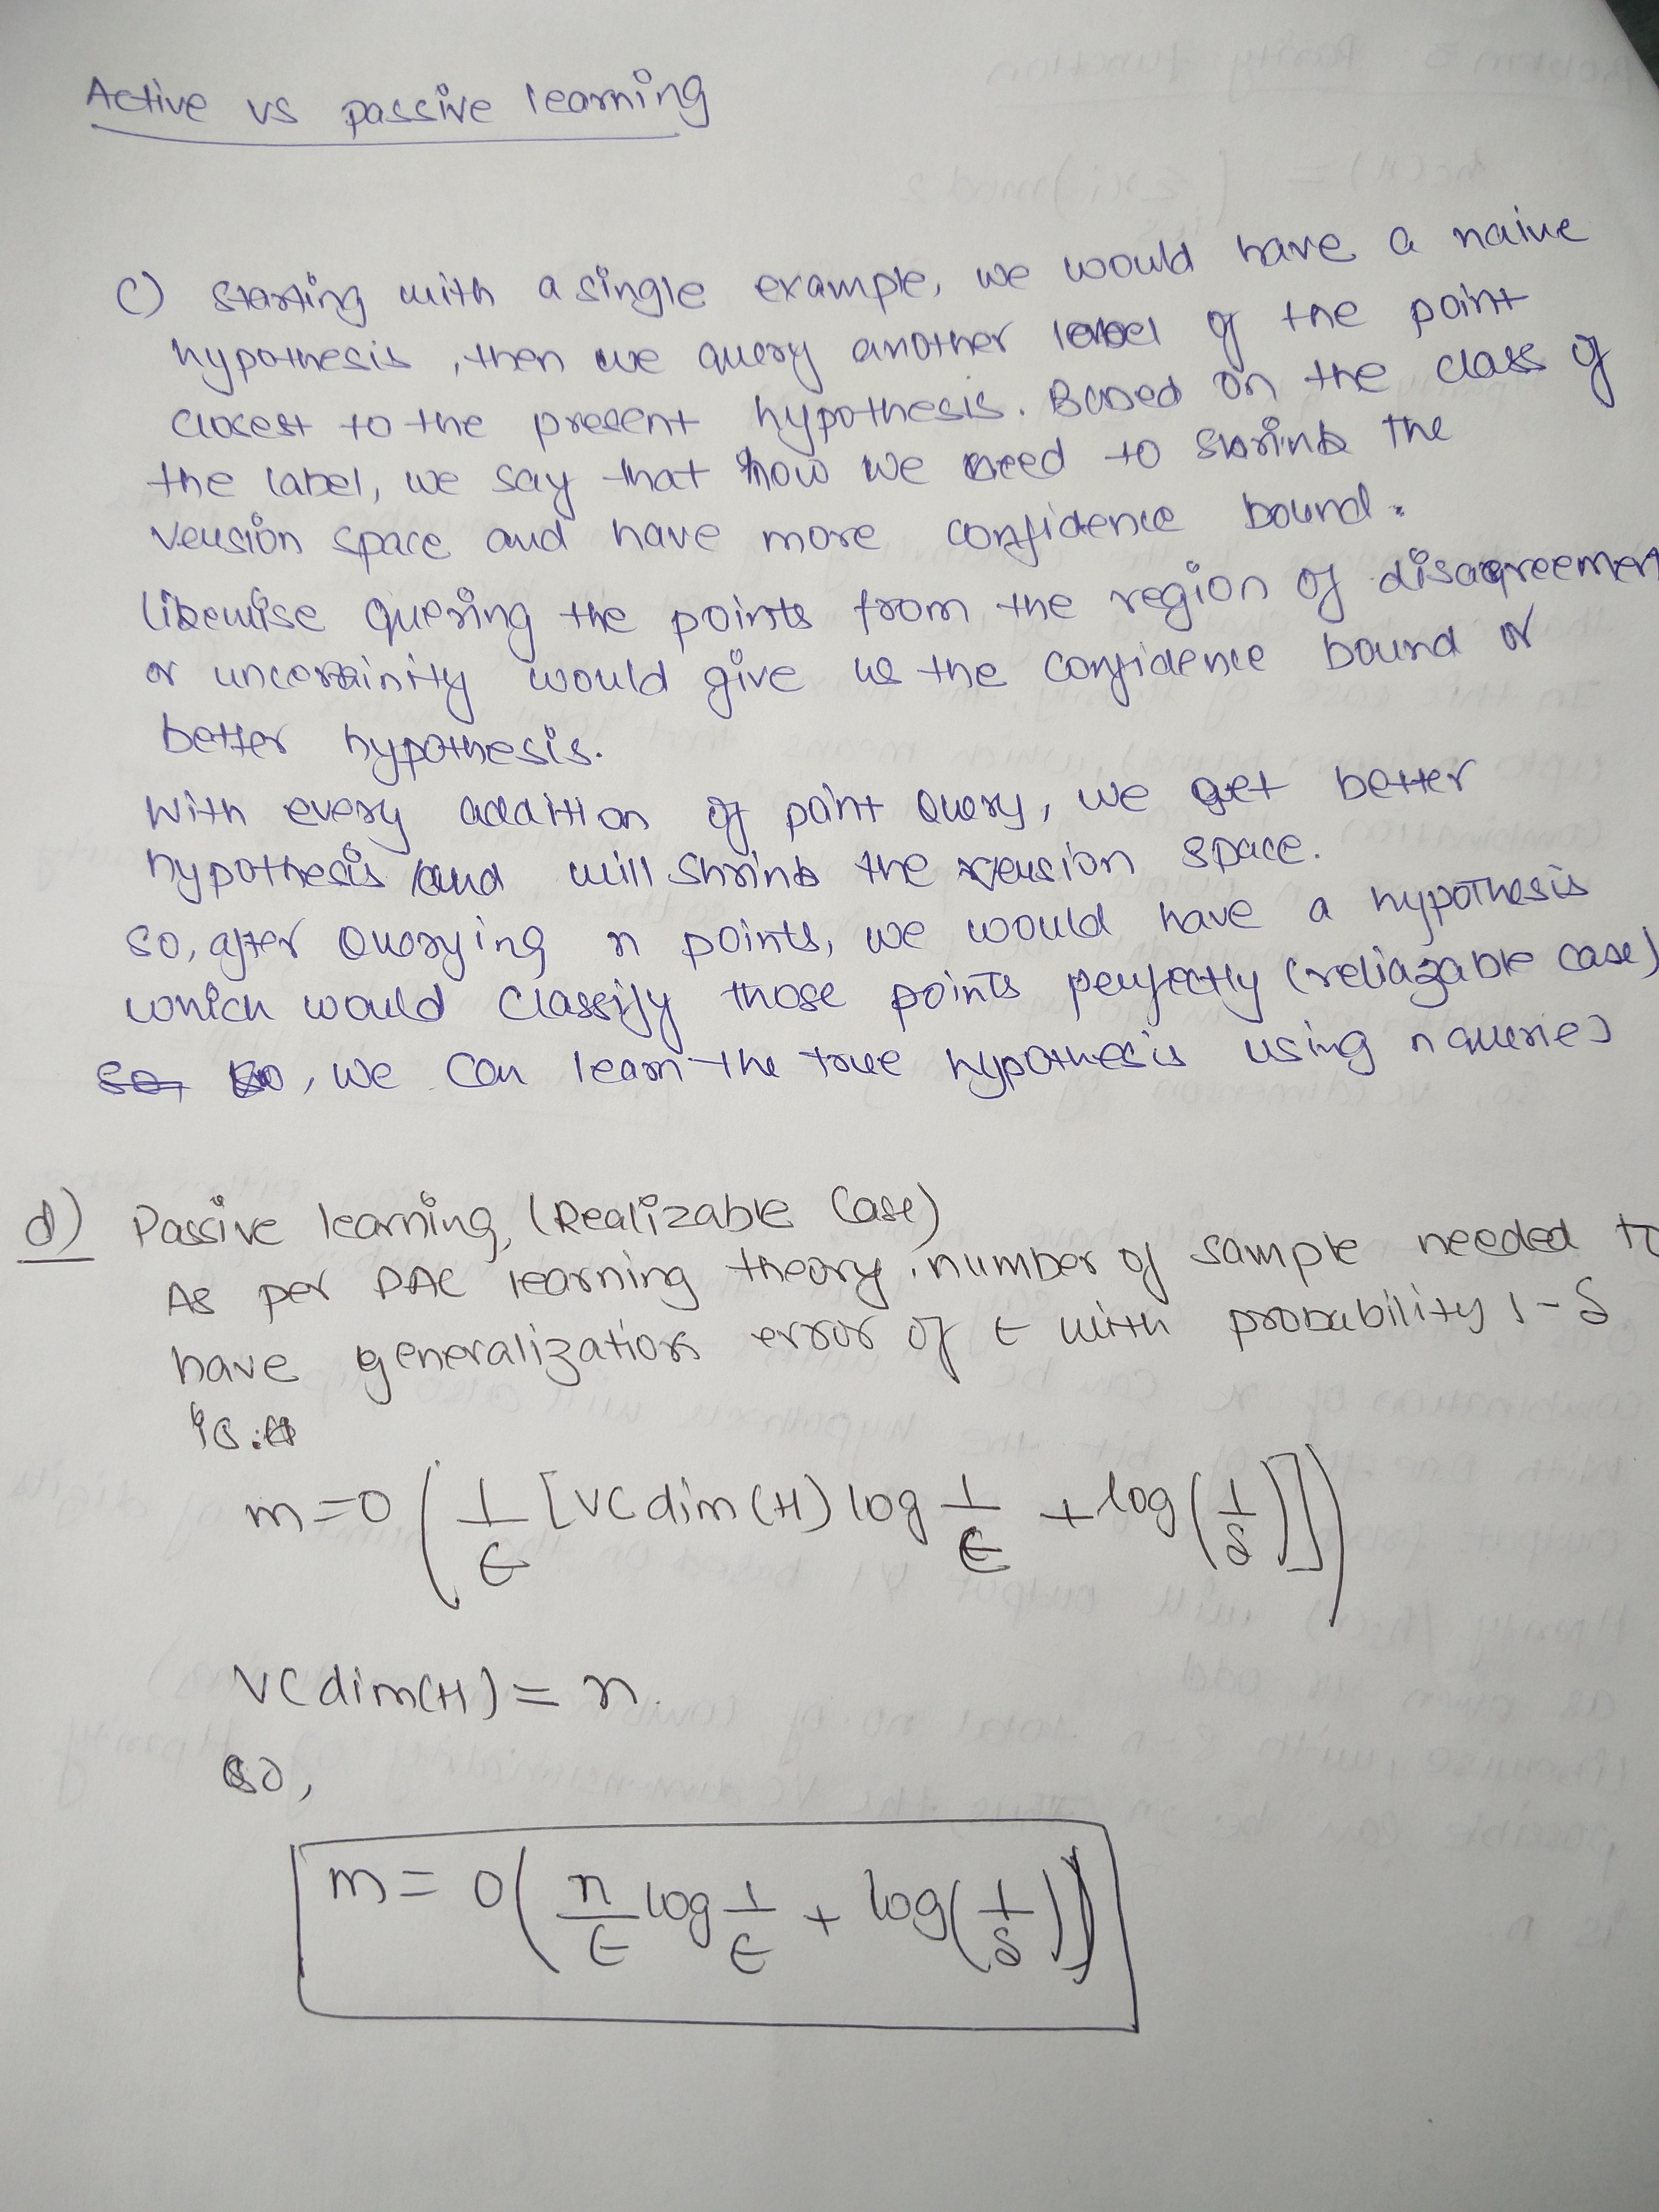 Active vs passive learning
c) starting with a single example, we would have a naive
hypothesis, then we query another label of the point
closest to the present hypothesis. Based on the class of
the label, we say that how we need to shrink the
version space and have more confidence bound.
likewise quering the points from the region of disagreement
or uncertainity would give us the confidence bound or
better hypothesis.
With every addition of point query, we get better
hypothesis and will shrink the version space.
So, after Querying n points, we would have a hypothesis
which would classify those points perfectly (reliazable case)
so, we can learn the true hypothesis using n queries
d) Passive learning, (Realizable Case)
As per PAC learning theory, number of sample needed to
have generalization error of ϵ with probability 1-δ
is:
m=O(1/ϵ [VCdim(H) log 1/ϵ + log(1/δ)])
VCdim(H) = n.
so,
m = O(n/ϵ log 1/ϵ + log(1/δ))